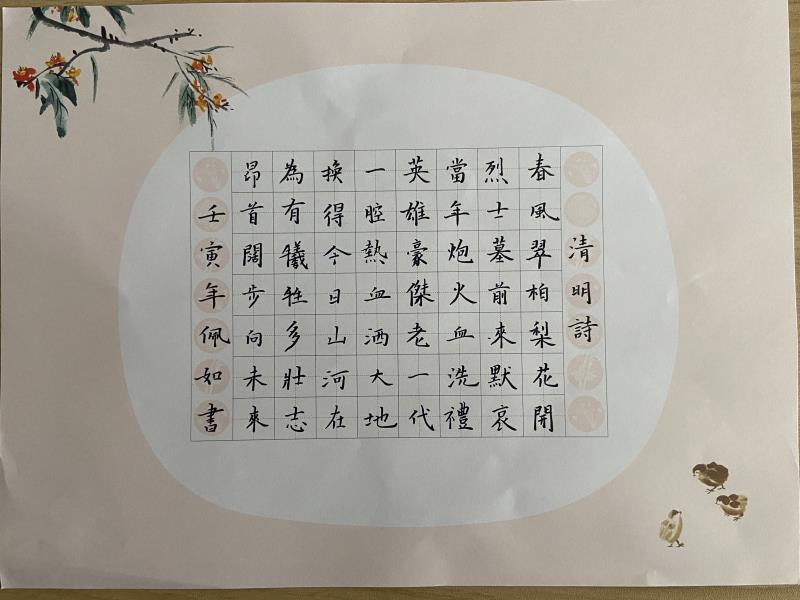 清明詩
春風翠柏梨花開
烈士墓前來默哀
當年炮火血洗禮
英雄豪傑老一代
一腔熱血洒大地
換得今日山河在
為有犧牲多壯志
昂首闊步向未來
壬寅年佩如書